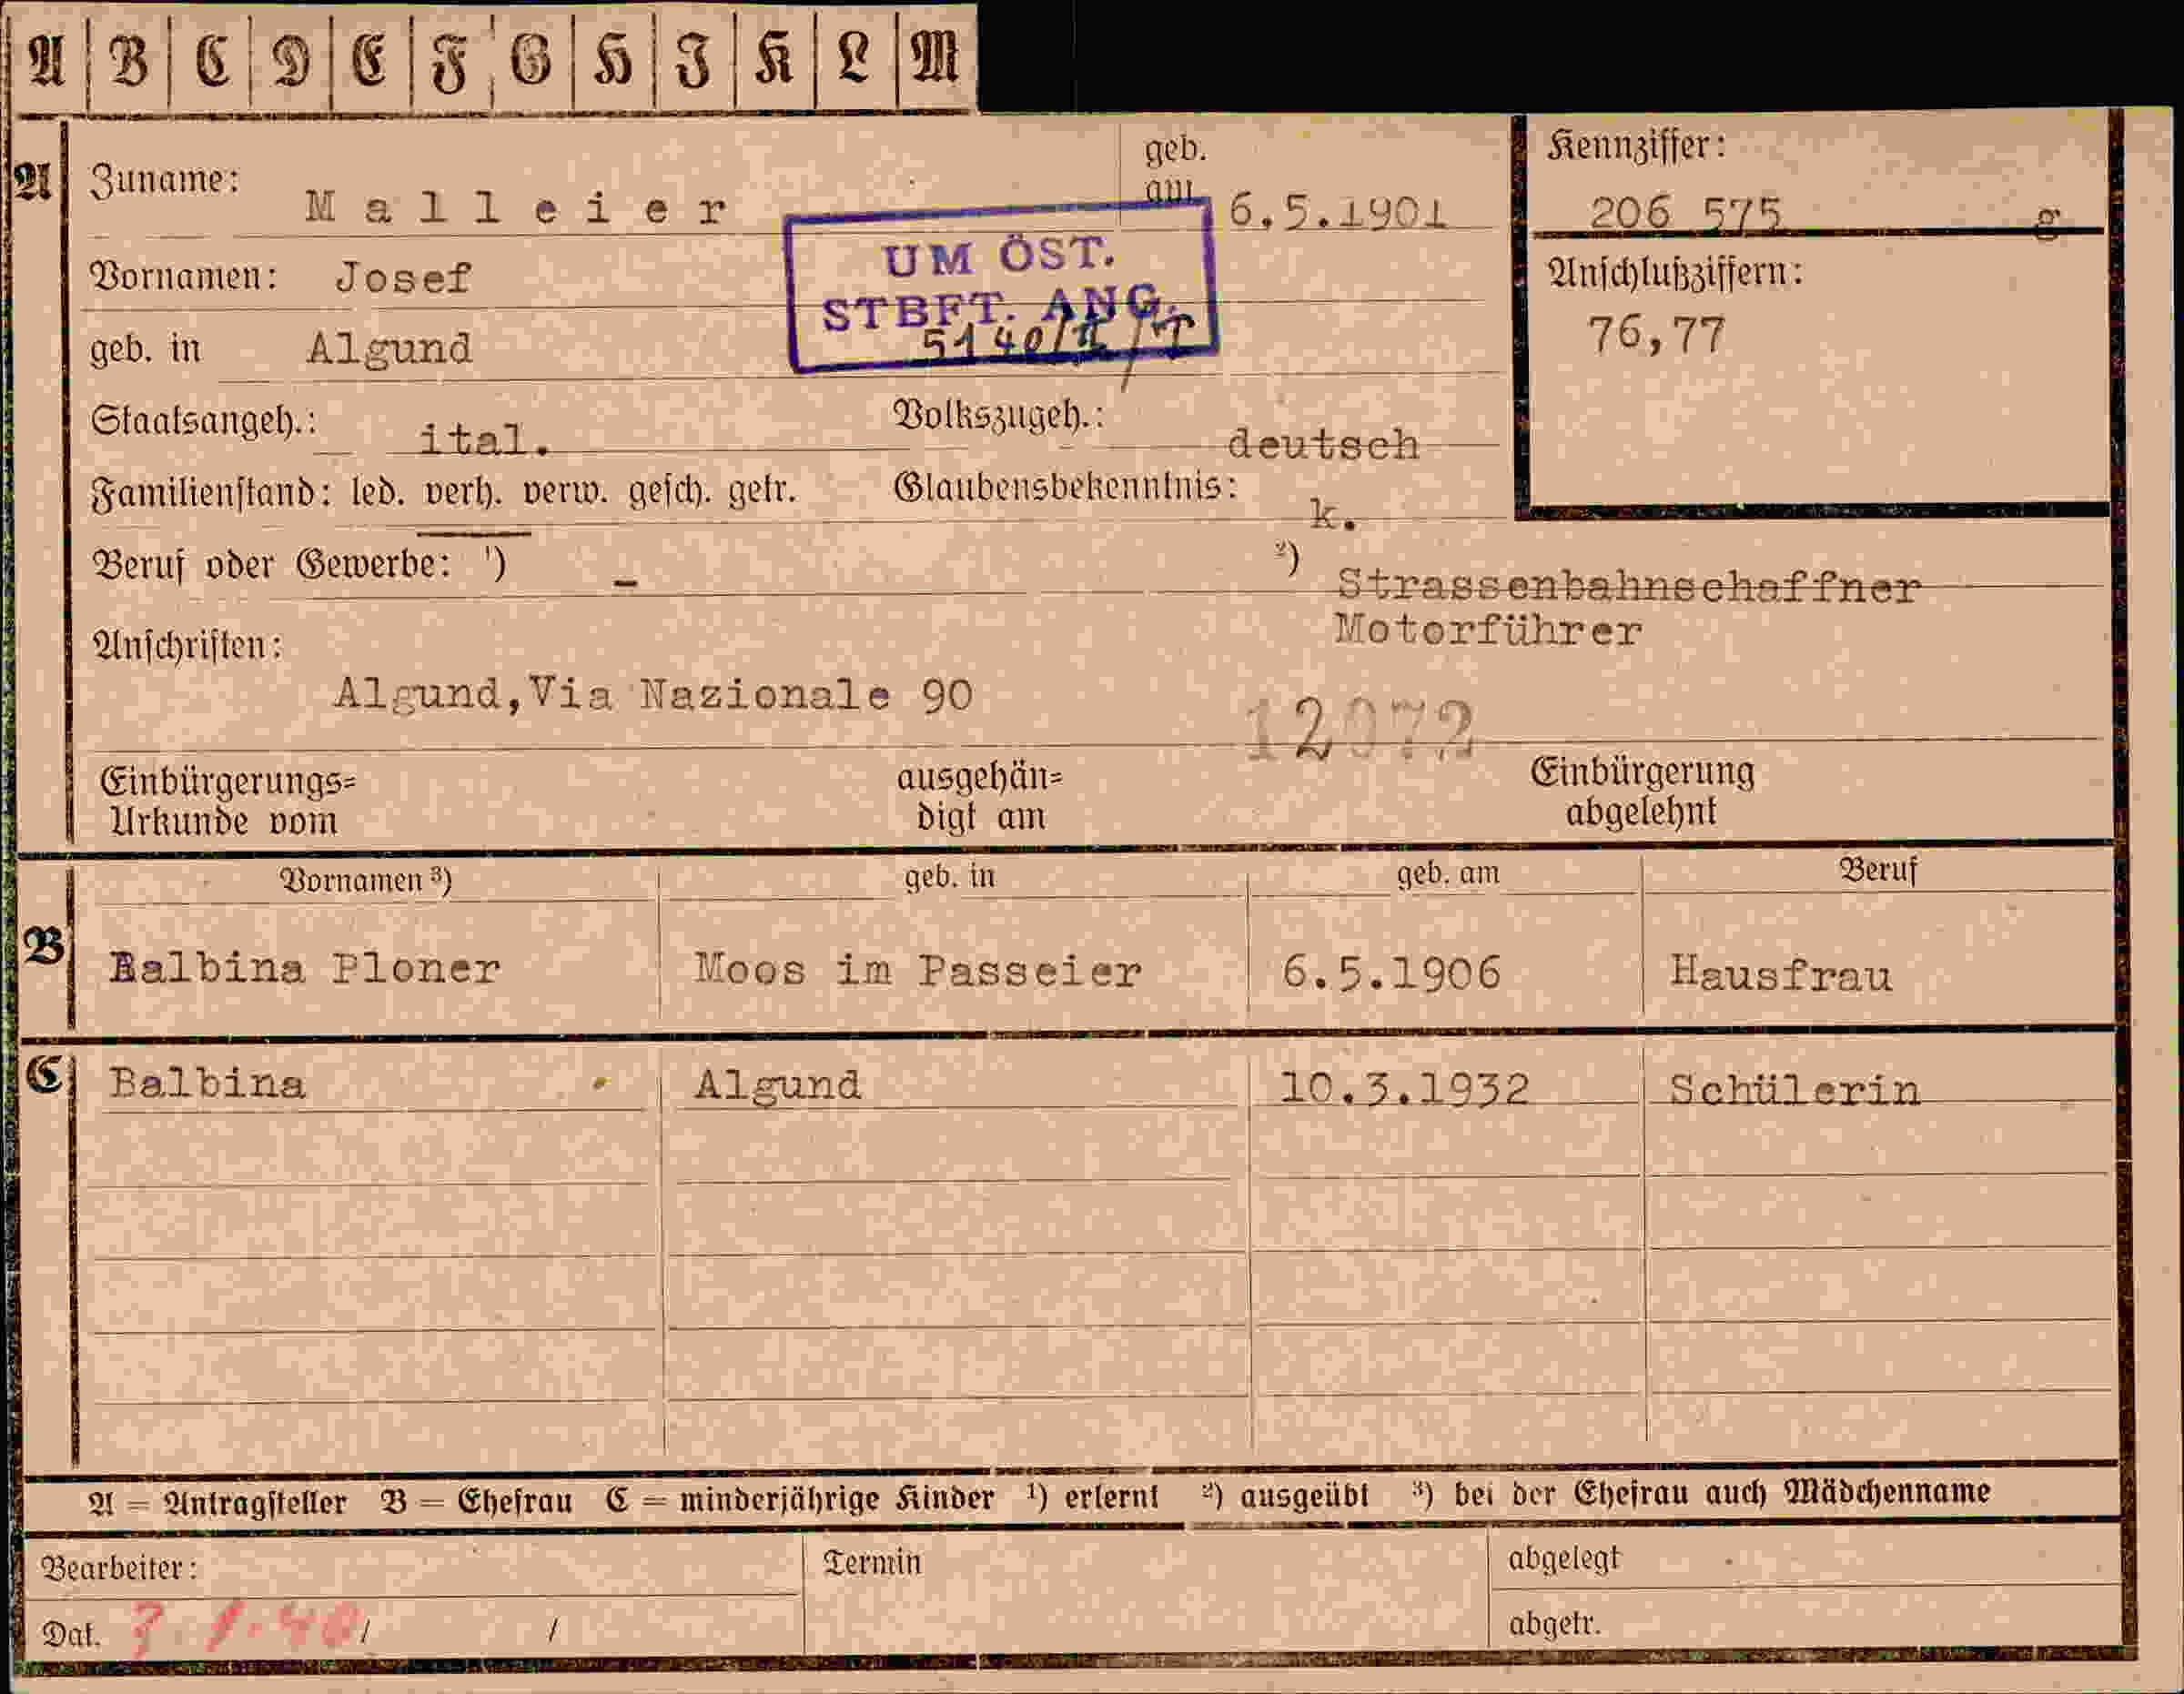 A B C D E F G H I K L M
A Zuname: Malleier geb. am 6.5.1901
Kennziffer: 206 575 g
Vornamen: Josef
UM ÖST. STBFT. ANG.
5140/II/T
Anschlußziffern:
76,77
geb. in Algund
Staatsangeh.: ital. Volkszugeh.: deutsch
Familienstand: led. verh. verw. gesch. getr. Glaubensbekenntnis: k.
Beruf oder Gewerbe: ¹) - ²) Strassenbahnschaffner
Motorführer
Anschriften:
Algund,Via Nazionale 90
12072
Einbürgerungs= ausgehän= Einbürgerung
Urkunde vom digt am abgelehnt
Vornamen ³) geb. in geb. am Beruf
B Balbina Ploner Moos im Passeier 6.5.1906 Hausfrau
C Balbina Algund 10.3.1932 Schülerin
A = Antragsteller B = Ehefrau C = minderjährige Kinder ¹) erlernt ²) ausgeübt ³) bei der Ehefrau auch Mädchenname
Bearbeiter: Termin abgelegt
Dat. / / abgetr.